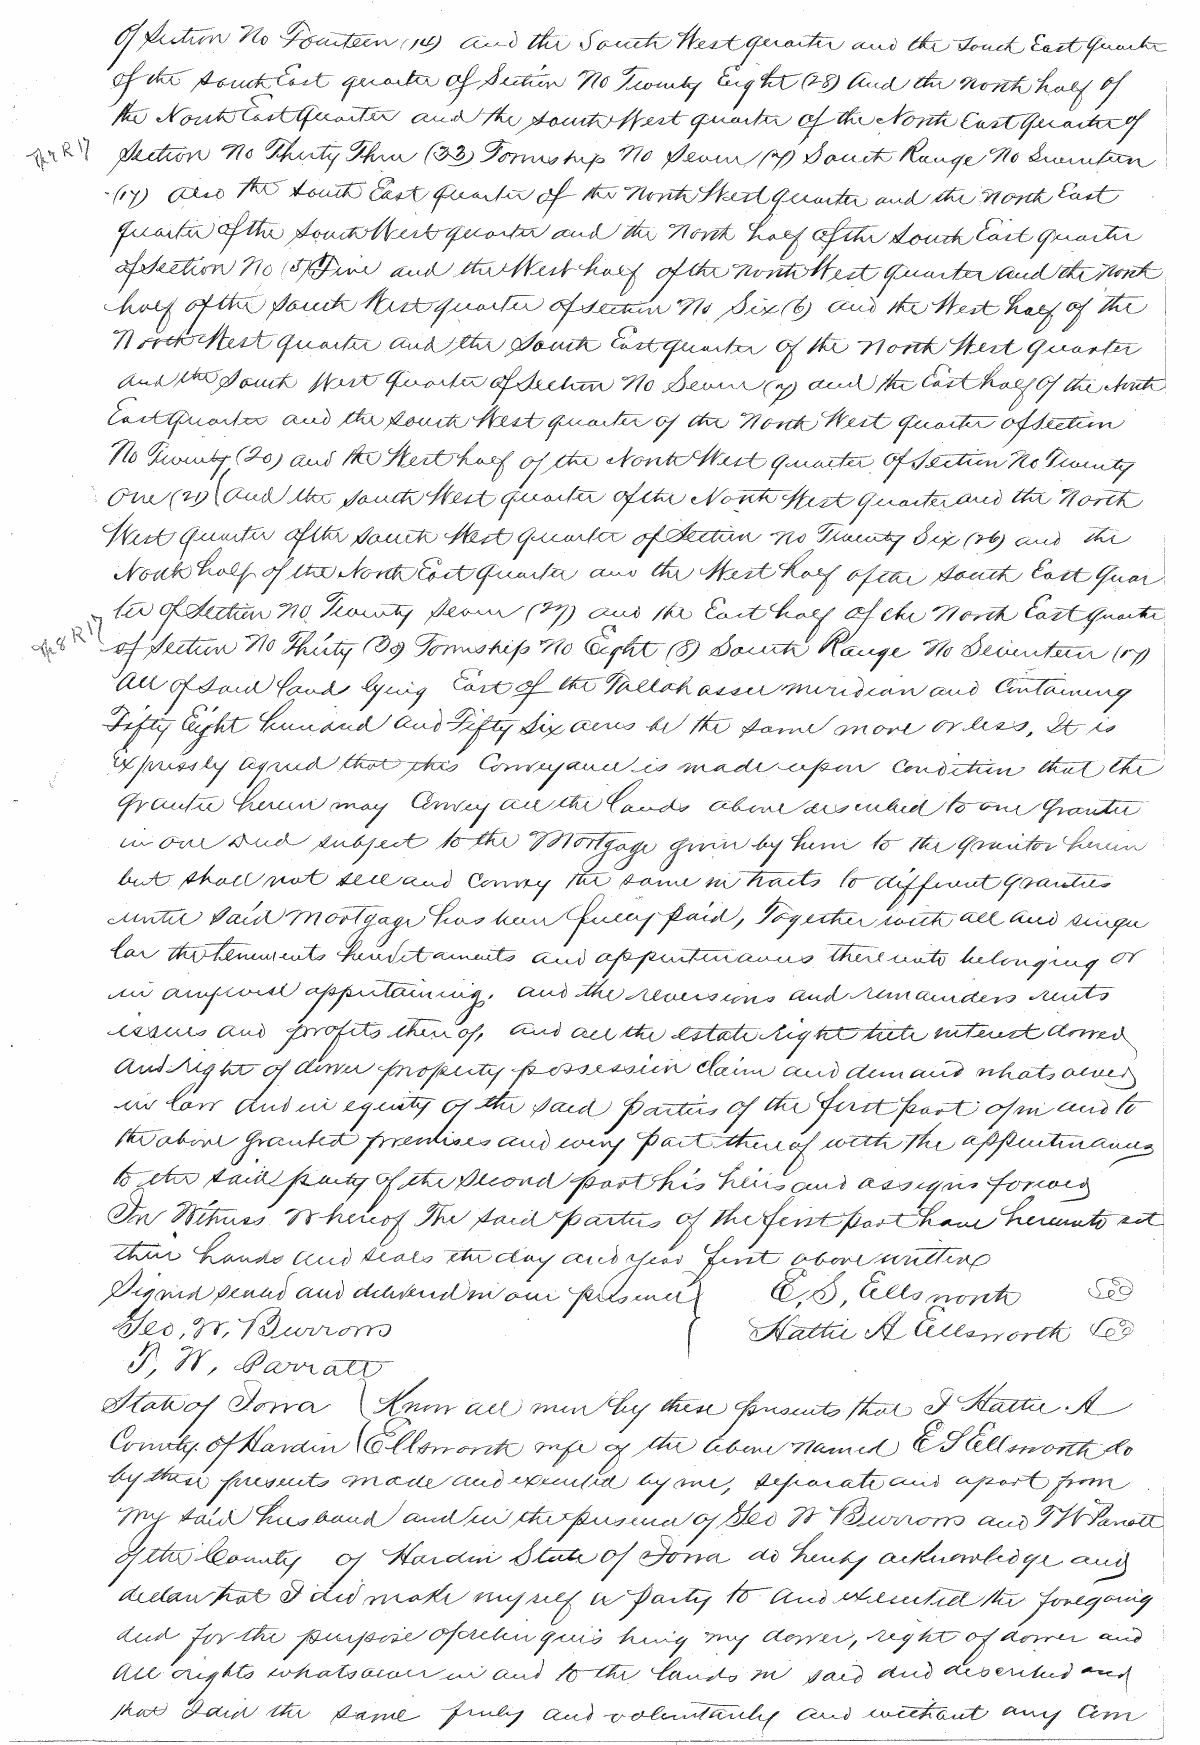 of Section No Fourteen (14) and the South West quarter and the South East Quarter
of the South East quarter of Section No Twenty Eight (28) and the North half of
the North East Quarter and the South West quarter of the North East Quarter of
T 7 R 17
Section No Thirty Three (33) Township No Seven (7) South Range No Seventeen
(17) also the South East quarter of the North West Quarter and the North East
quarter of the South West quarter and the North half of the South East quarter
of Section No (5) Five and the West half of the North West quarter and the North
half of the South West quarter of Section No Six (6) and the West half of the
North West quarter and the South East quarter of the North West quarter
and the South West quarter of Section No Seven (7) and the East half of the North
East Quarter and the South West quarter of the North West quarter of Section
No Twenty (20) and the West half of the North West quarter of Section No Twenty
One (21) and the South West quarter of the North West quarter and the North
West quarter of the South West quarter of Section No Twenty Six (26) and the
North half of the North East Quarter and the West half of the South East Quar
ter of Section No Twenty Seven (27) and the East half of the North East quarter
T 8 R 17
of Section No Thirty (30) Township No Eight (8) South Range No Seventeen (17)
All of said lands lying East of the Tallahassee meridian and Containing
Fifty Eight hundred and Fifty Six acres be the same more or less, It is
expressly agreed that this Conveyance is made upon condition that the
grantee herein may Convey all the lands above described to one Grantee
in one Deed subject to the Mortgage given by him to the grantor herein
but shall not sell and convey the same in tracts to different grantees
until said mortgage has been fully paid, Together with all and singu
lar the tenements hereditaments and appurtenances thereunto belonging or
in anywise appertaining, and the reversions and remainders rents
issues and profits thereof, and all the estate right title interest dower
and right of dower property possession claim and demand whatsoever
in law and in equity of the said parties of the first part of in and to
the above granted premises and every part thereof with the appurtenances
to the said party of the second part his heirs and assigns forever
In Witness Whereof The said parties of the first part have hereunto set
their hands and seals the day and year first above written
Signed sealed and delivered in our presence E. S. Ellsworth Seal
Geo. W. Burrows Hattie A Ellsworth Seal
T. W. Parratt
State of Iowa Know all men by these presents that I Hattie A
County of Hardin Ellsworth wife of the above named E S Ellsworth do
by these presents made and executed by me, separate and apart from
my said husband and in the presence of Geo W Burrows and T W Parratt
of the County of Hardin State of Iowa do hereby acknowledge and
declare that I did make myself a party to and executed the foregoing
deed for the purpose of relinquishing my dower, right of dower and
all rights whatsoever in and to the lands in said deed described and
that I did the same freely and voluntarily and without any Com